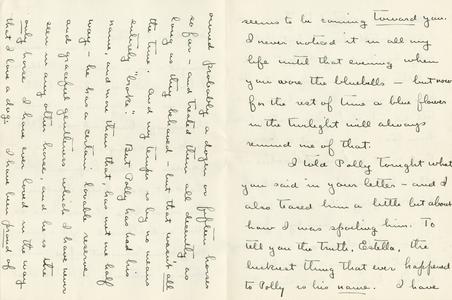 seems to be coming toward you.
I never noticed it in all my
life until that evening when
you wore the bluebells – but now
for the rest of time a blue flower
in the twilight will always
remind me of that.
I told Polly tonight what
you said in your letter – and I
also teased him a little but about
how I was spoiling him. To
tell you the truth, Estella, the
luckiest thing that ever happened
to Polly is his name. I have
owned probably a dozen or fifteen horses
so far – and treated them all decently as
long as they behaved – but that wasn't all
the time. And my temper is by no means
entirely "broke." But Polly has had his
name, and more than that, has met me half
way – he has a certain lovable reserve
and graceful gentleness which I have never
seen in any other horse and he is the
only horse I have ever loved in the way
that I love a dog. I have been proud of